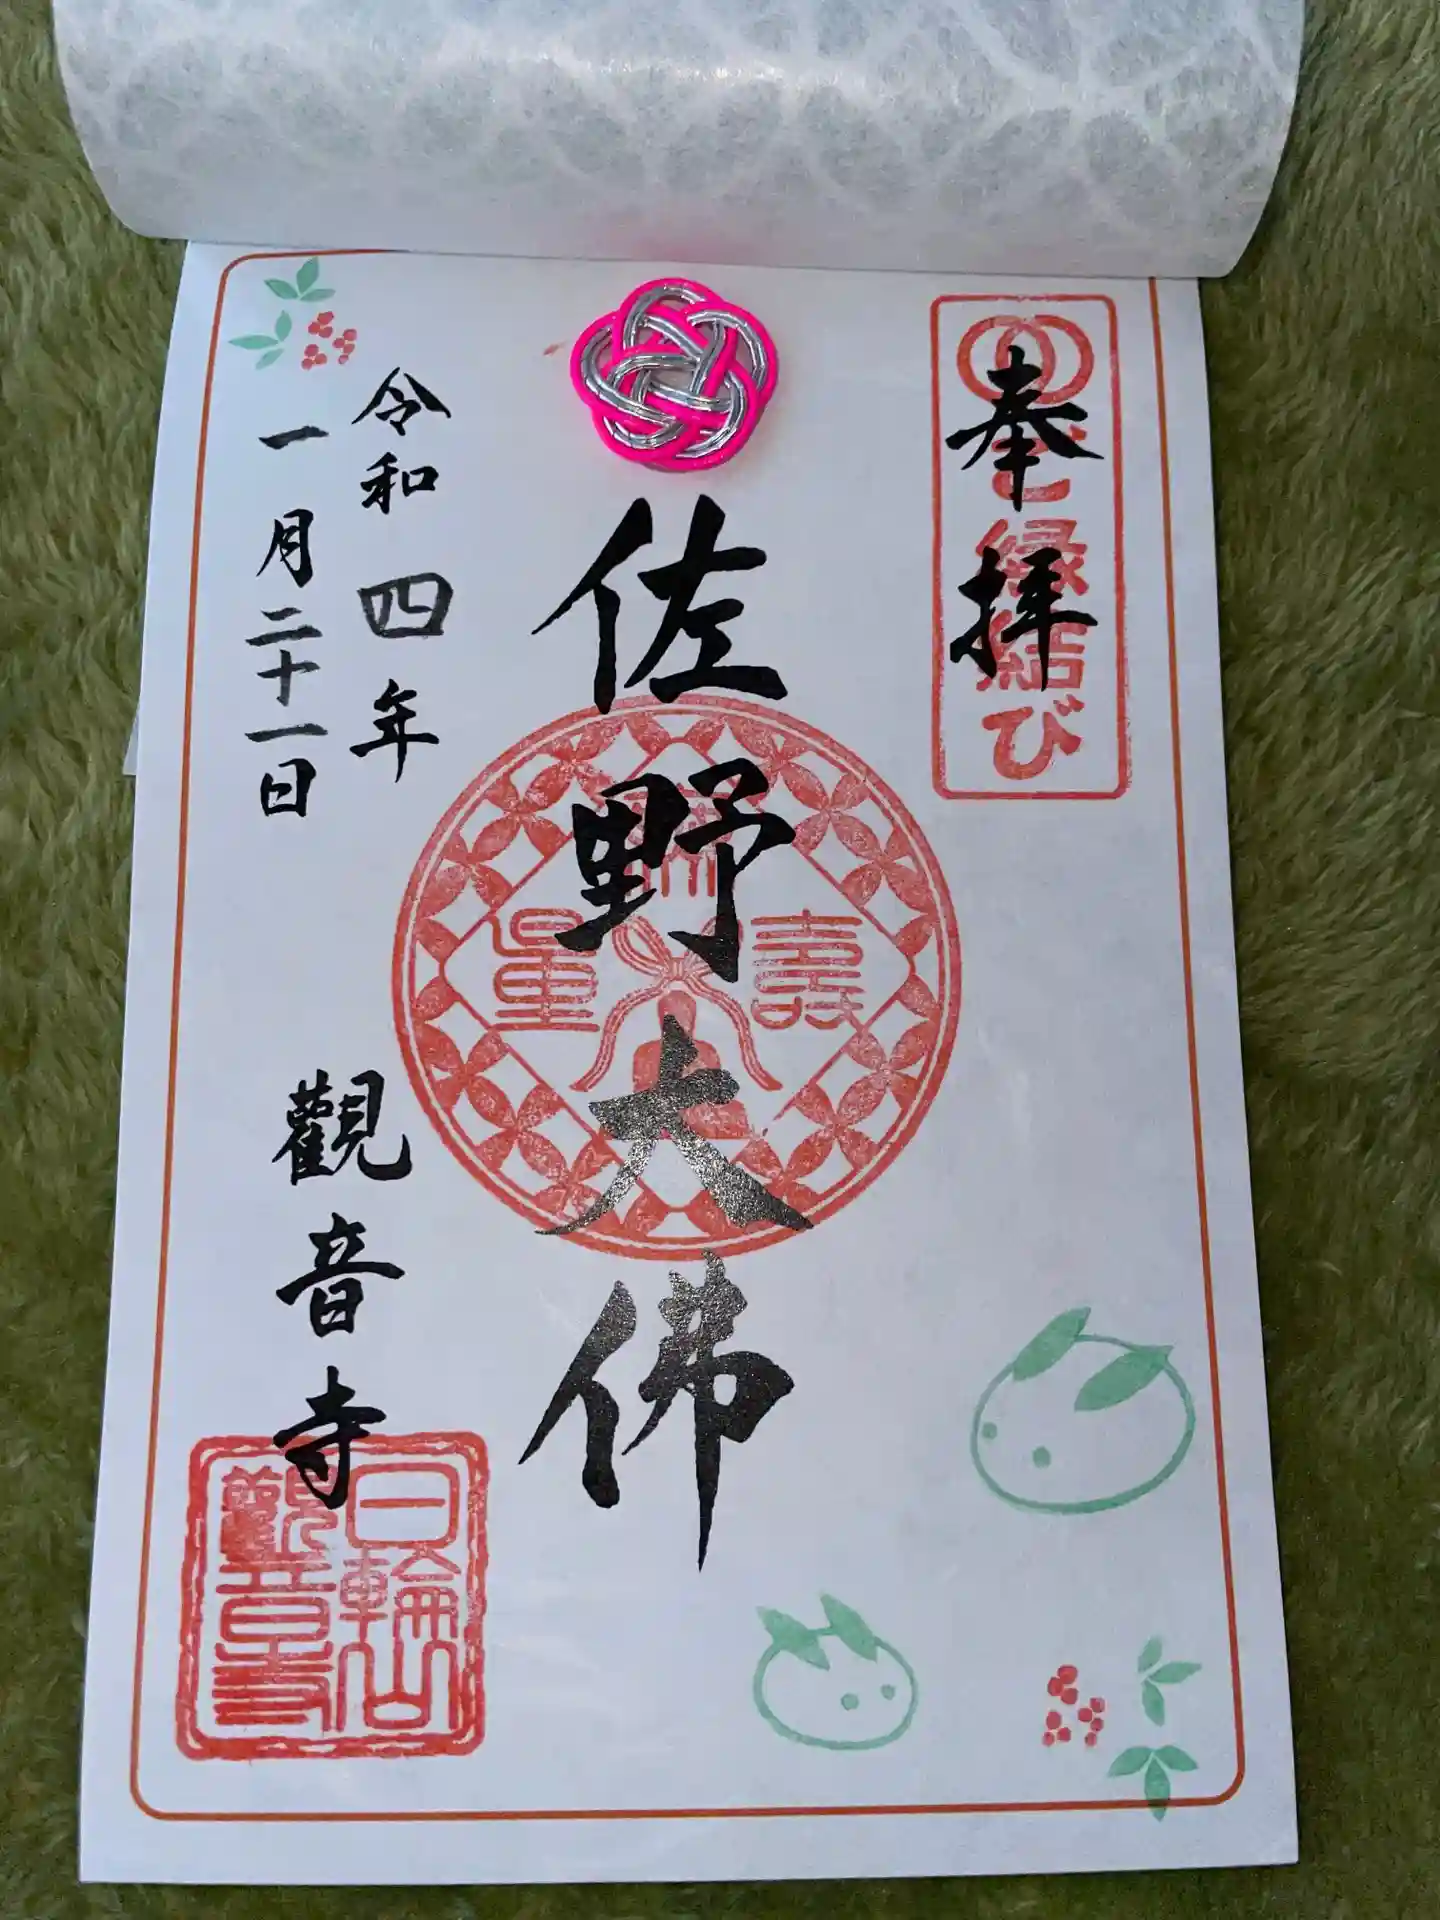 奉拝
ご縁結び
佐野大佛
無
壽
量
令和四年
一月二十一日
觀音寺
日輪山
觀音寺